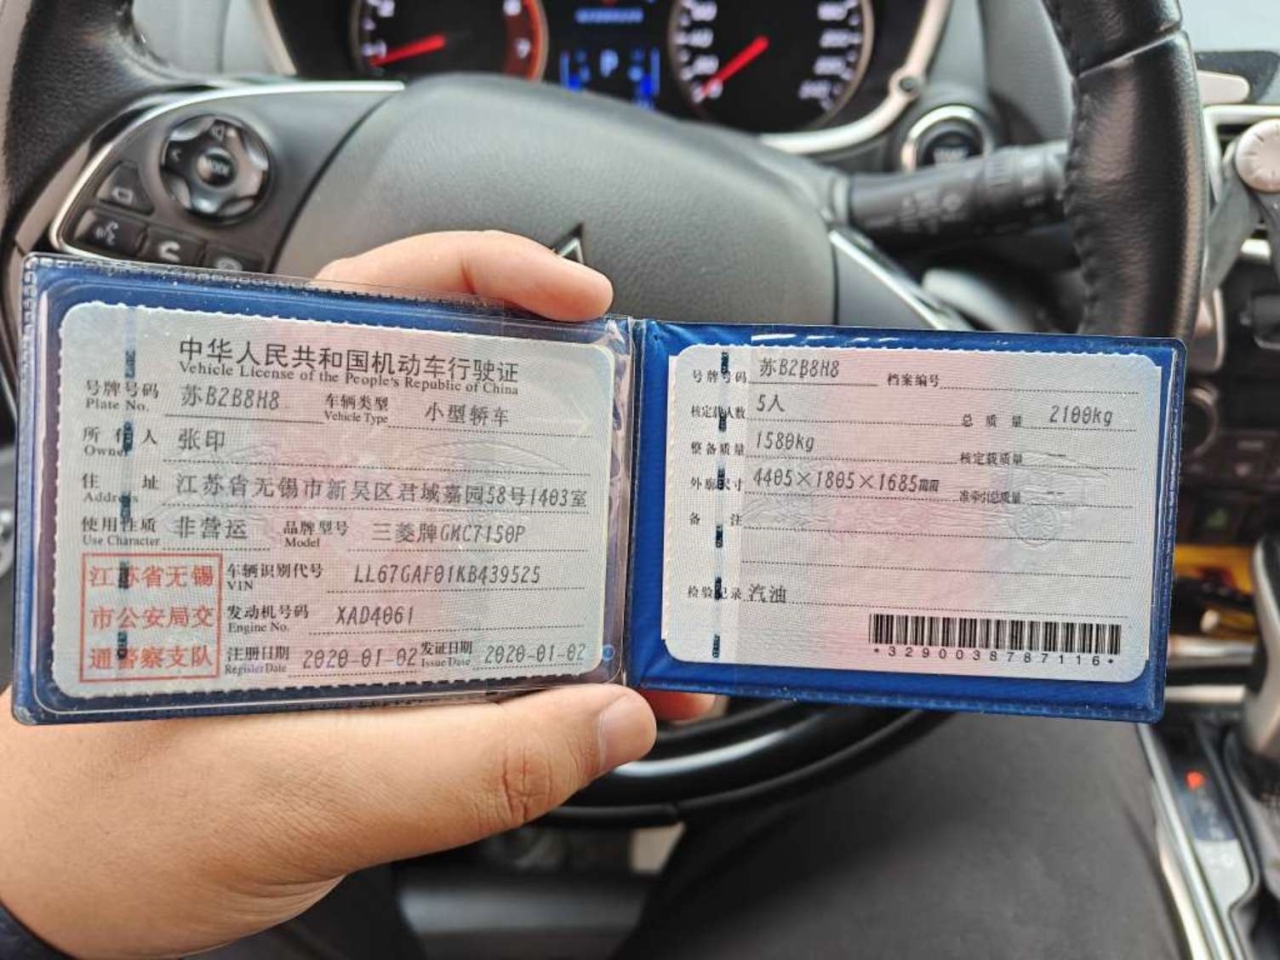 中华人民共和国机动车行驶证
Vehicle License of the People's Republic of China
号牌号码 苏B2B8H8 车辆类型 小型轿车
Plate No. Vehicle Type
所有人 张印
Owner
住址 江苏省无锡市新吴区君域嘉园58号1403室
Address
使用性质 非营运 品牌型号 三菱牌GMC7150P
Use Character Model
江苏省无锡
市公安局交
通警察支队
车辆识别代号 LL67GAF01KB439525
VIN
发动机号码 XAD4061
Engine No.
注册日期 2020-01-02 发证日期 2020-01-02
Register Date Issue Date
号牌号码 苏B2B8H8 档案编号
核定载人数 5人 总质量 2100kg
整备质量 1580kg 核定载质量 --
外廓尺寸 4405×1805×1685mm 准牵引总质量 --
备注
检验记录 汽油
*3290038787116*
P